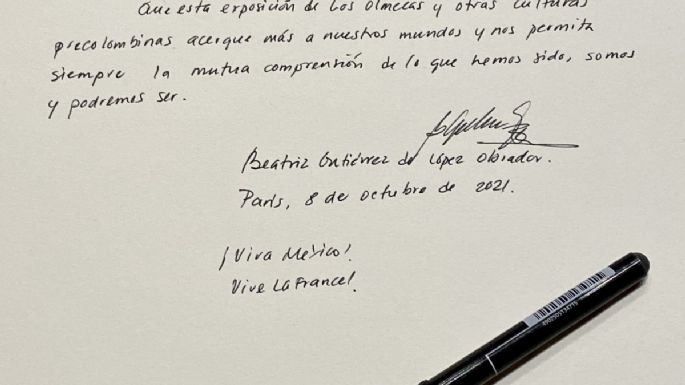 Que esta exposición de Los Olmecas y otras culturas
precolombinas acerque más a nuestros mundos y nos permita
siempre la mutua comprensión de lo que hemos sido, somos
y podremos ser.
Beatriz Gutiérrez de López Obrador.
París, 8 de octubre de 2021.
¡Viva México!
Vive La France!